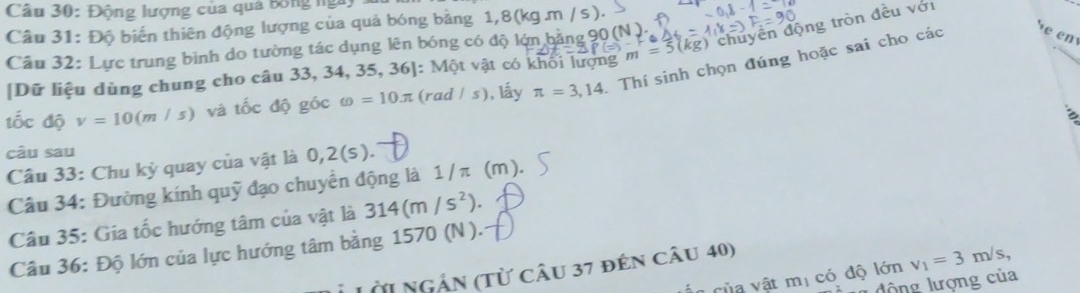 Câu 30: Động lượng của quả bóng ngay
Câu 31: Độ biến thiên động lượng của quả bóng bằng 1,8(kg.m / s). S
Câu 32: Lực trung bình do tường tác dụng lên bóng có độ lớn bằng 90 (N). Đ
[Dữ liệu dùng chung cho câu 33, 34, 35, 36]: Một vật có khối lượng m = 5(kg) chuyển động tròn đều với
tốc độ v = 10(m / s) và tốc độ góc ω = 10.π (rad / s), lấy π = 3,14. Thí sinh chọn đúng hoặc sai cho các
câu sau
Câu 33: Chu kỳ quay của vật là 0,2(s). Đ
Câu 34: Đường kính quỹ đạo chuyển động là 1/π (m). S
Câu 35: Gia tốc hướng tâm của vật là 314(m / s²). Đ
Câu 36: Độ lớn của lực hướng tâm bằng 1570 (N). Đ
LỜI NGẮN (TỪ CÂU 37 ĐẾN CÂU 40)
của vật m₁ có độ lớn v₁ = 3 m/s,
động lượng của